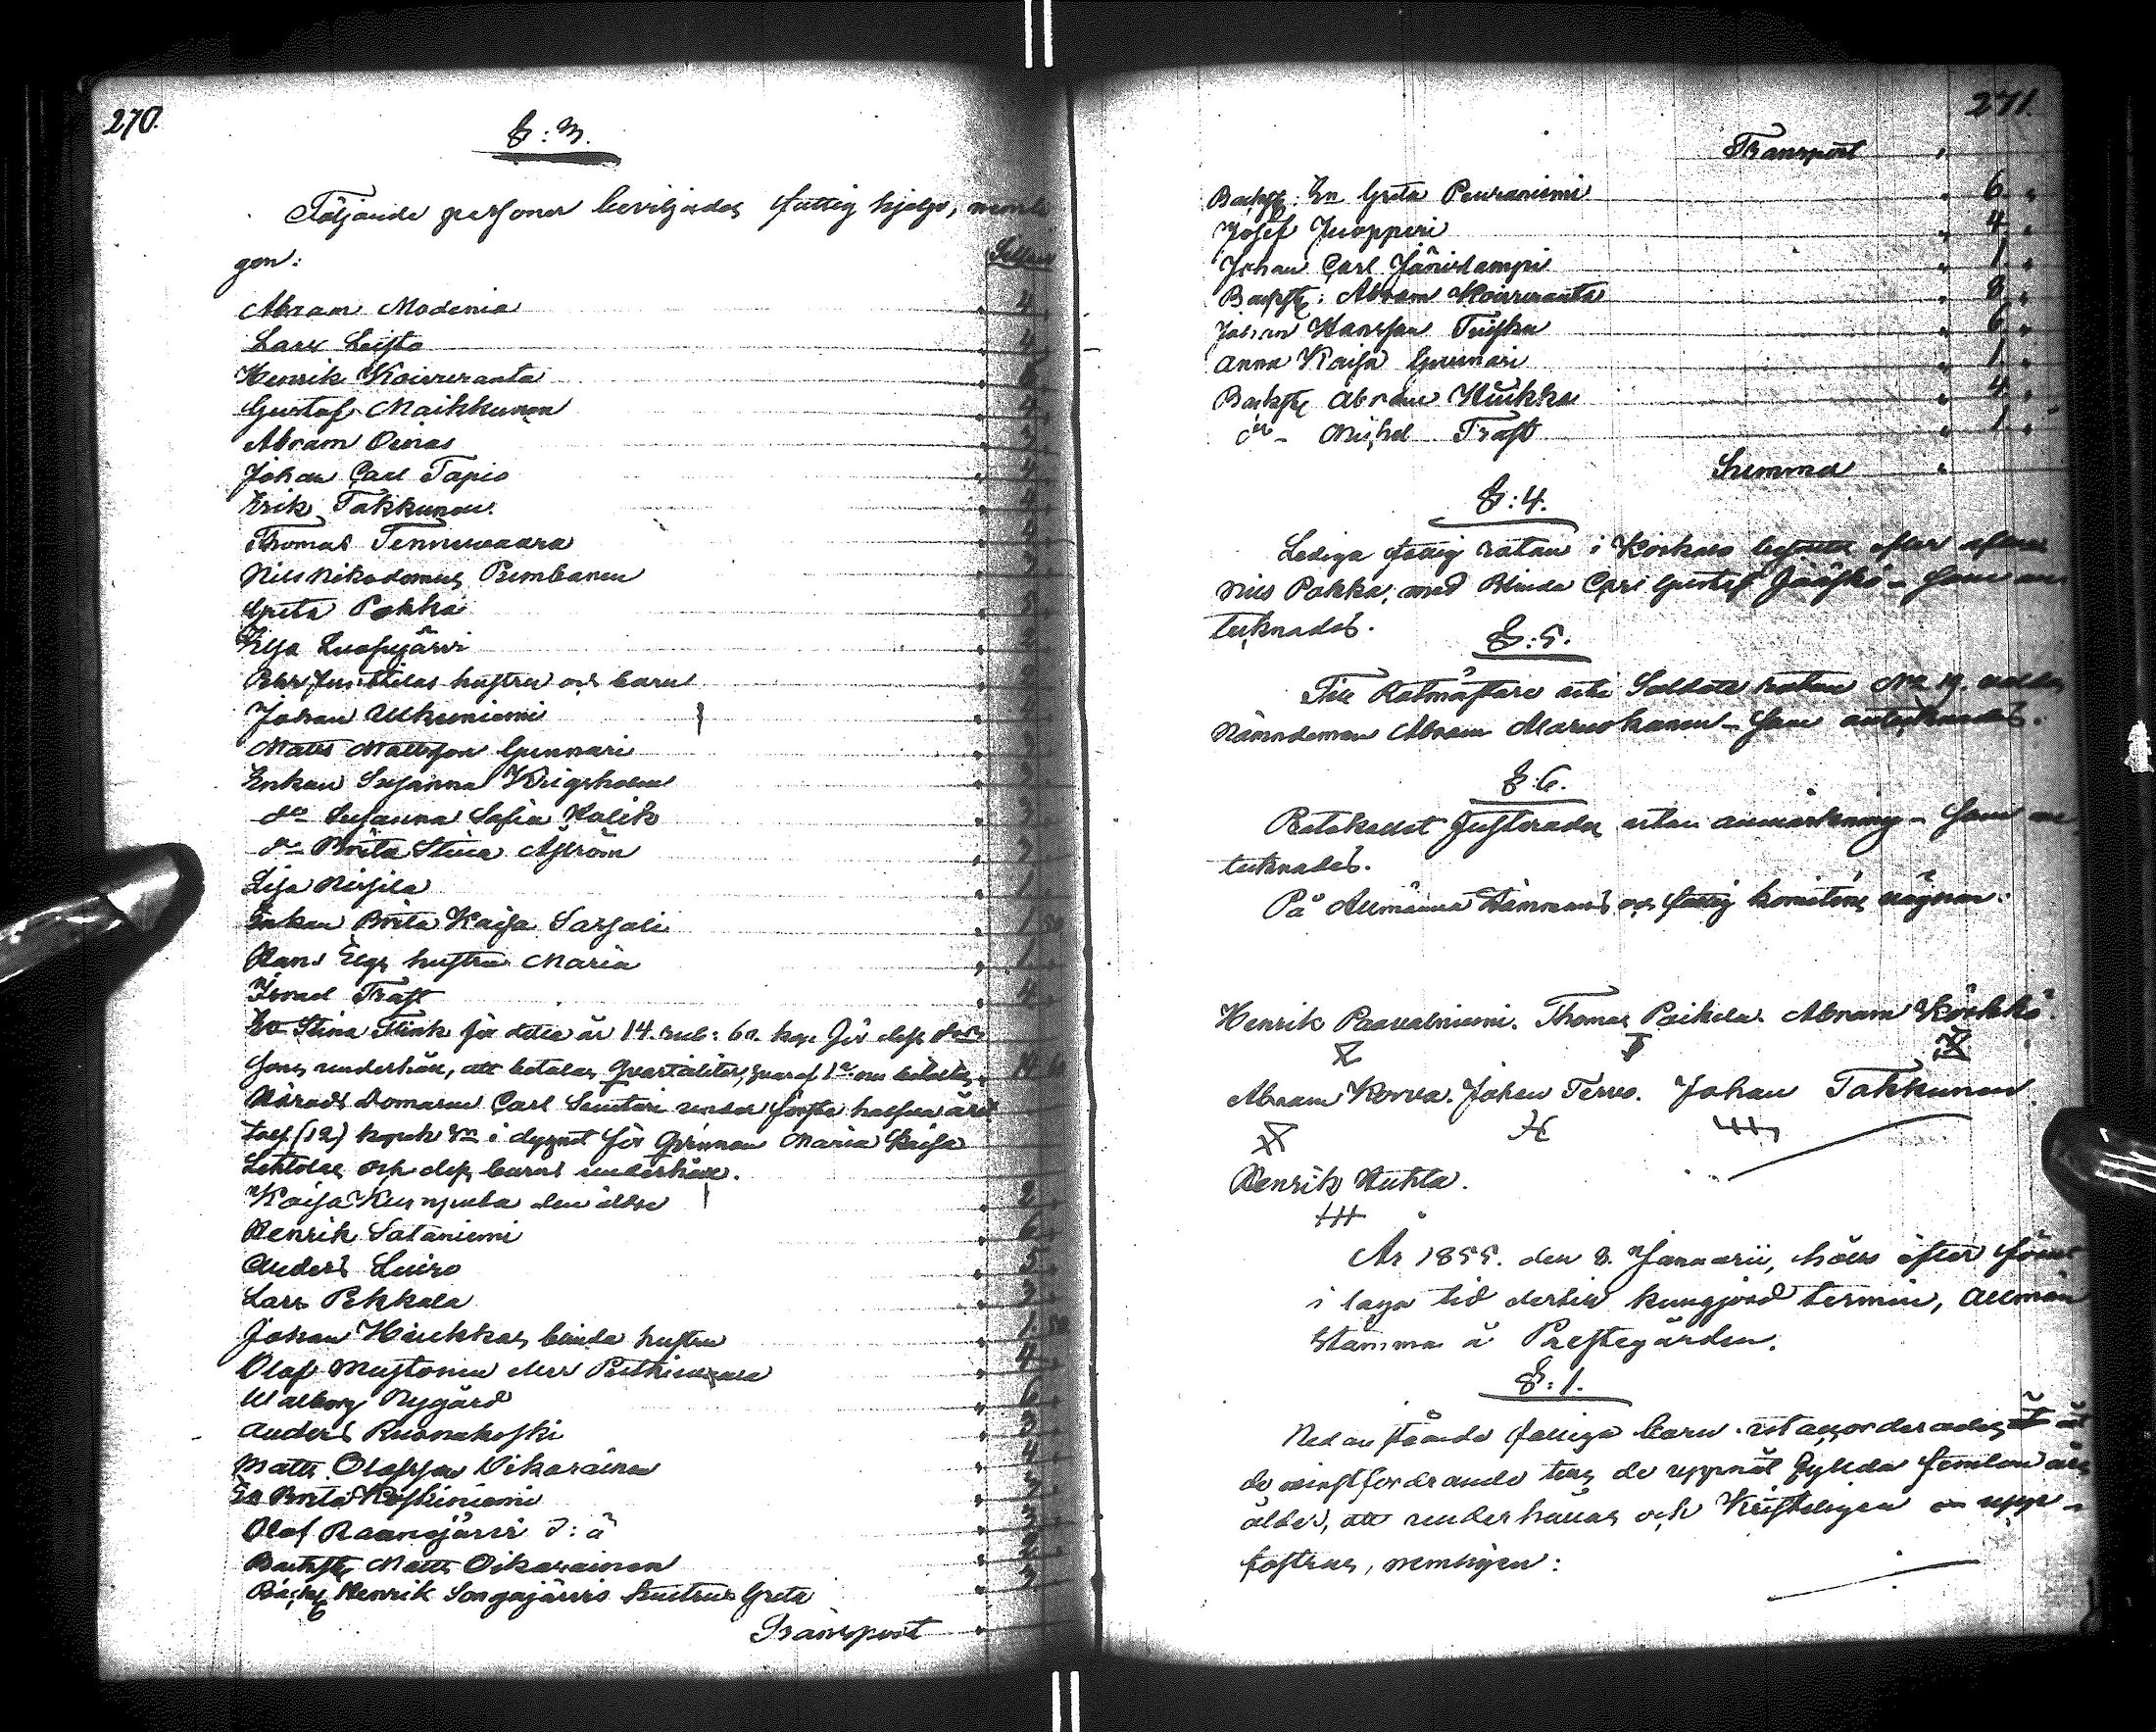 270.
§: 3.
Följande personer beviljades fattig hjelp, nemli
gen:
Silfver
Abram Modenia " 4
Lars Leisto " 4
Henrik Koivuranta "
Gustaf Maikkunen " 4
Abram Oinas " 3
Johan Carl Tapio " 4
Erik Takkunen " 4
Thomas Tennivaara " 4
Nils Nikodemus Pumbanen
Greta Pokka
Elsa Luosujärvi " 2
Pehr Junttilas hustru och barn " 2
Johan Ulkuniemi
Matts Mattsson Gunnari " 3
Enkan Susanna Krigsholm " 3
do Susanna Sofia Kalik " 3
do Brita Stina Åström " 3
Lisa Niskala " 1
Enkan Brita Kaisa Sarsali " 1 50
Hans Elgs hustru Maria " 1
Israel Traft " 4
En Stina Flink för detta år 14. rub: 60. kop. för dess
sons underhåll, att betalas Qvartaliter, hvaraf 1a nu betaltes " 14 60
Härads Domaren Carl Lentari under första halfva året
tolf (12) kopek Sm i dygnet för Qvinnan Maria Kaisa
Lehtolas och dess barns underhåll.
Kaisa Kumpula den äldre " 2
Henrik Sataniemi " 6
Anders Luiro " 5
Lars Pekkala " 3
Johan Hiukkas blinda hustru " 1. 50
Olof Mustonen eller " 4
Walborg Nygård " 6
Anders Ruonakoski " 3
Matts Olofsson Oikarainen " 4
En Brita Koskiniemi " 3
Olof Raanojärvi d: ä " 3
Backstg Matts Oikarainen " 2
Backstg Henrik Songajärvis hustru Greta " 3
Transport "
271.
Transport "
Backstg: En Greta Peuraniemi " 6. "
Josef Juopperi " 4. "
Johan Carl Jänislampi " 1. "
Backstg: Abram Koivuranta " 8. "
Johan Hansson Tuisku " 6. "
Anna Kaisa Gunnari " 1. "
Backstg Abram Hiukka " 4. "
do - Michel Traft " 1. "
Summa "
§: 4.
Lediga fattig rotan i Korkalo besattes efter aflidne
Nils Pokka, med Blinda Carl Gustaf Jääskö - som an
tecknades.
§: 5.
Till Rotmästare uti Soldate rotan No 19. valdes
Nämndeman Abram Maruokanen - som antecknades.
§: 6.
Protokollet justerades utan anmärkning - som an
tecknades.
På Allmänna Stämmans och fattig komitens vägnar:
Henrik Paavalniemi. Thomas Poikela. Abram Körkkö.
Abram Korva. Johan Tervo. Johan Takkunen.
Henrik Huhta.
År 1855. den 8. Januarii, hölls efter förut
i laga tid dertill kungjord termin, Allmän
Stämma å Prestegården.
§: 1.
Nedanstående fattiga barn utauctionerades åt
de minstfordrande tills de uppnåt fyllda femton års
ålder, att underhållas och Kristeligen upp-
fostras, nemligen: